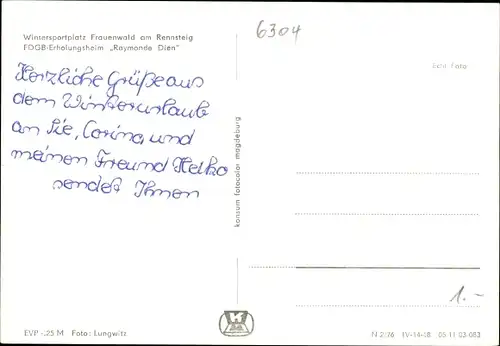 Wintersportplatz Frauenwald am Rennsteig
FDGB-Erholungsheim „Raymonde Dien"
6304
Echt Foto
Herzliche Grüße aus
dem Winterurlaub
an Sie, Corina, und
meinen Freund Heiko
sendet Ihnen
konsum fotocolor magdeburg
1.-
EVP -.25 M Foto: Lungwitz
N 2/76 IV-14-48 05 11 03 083